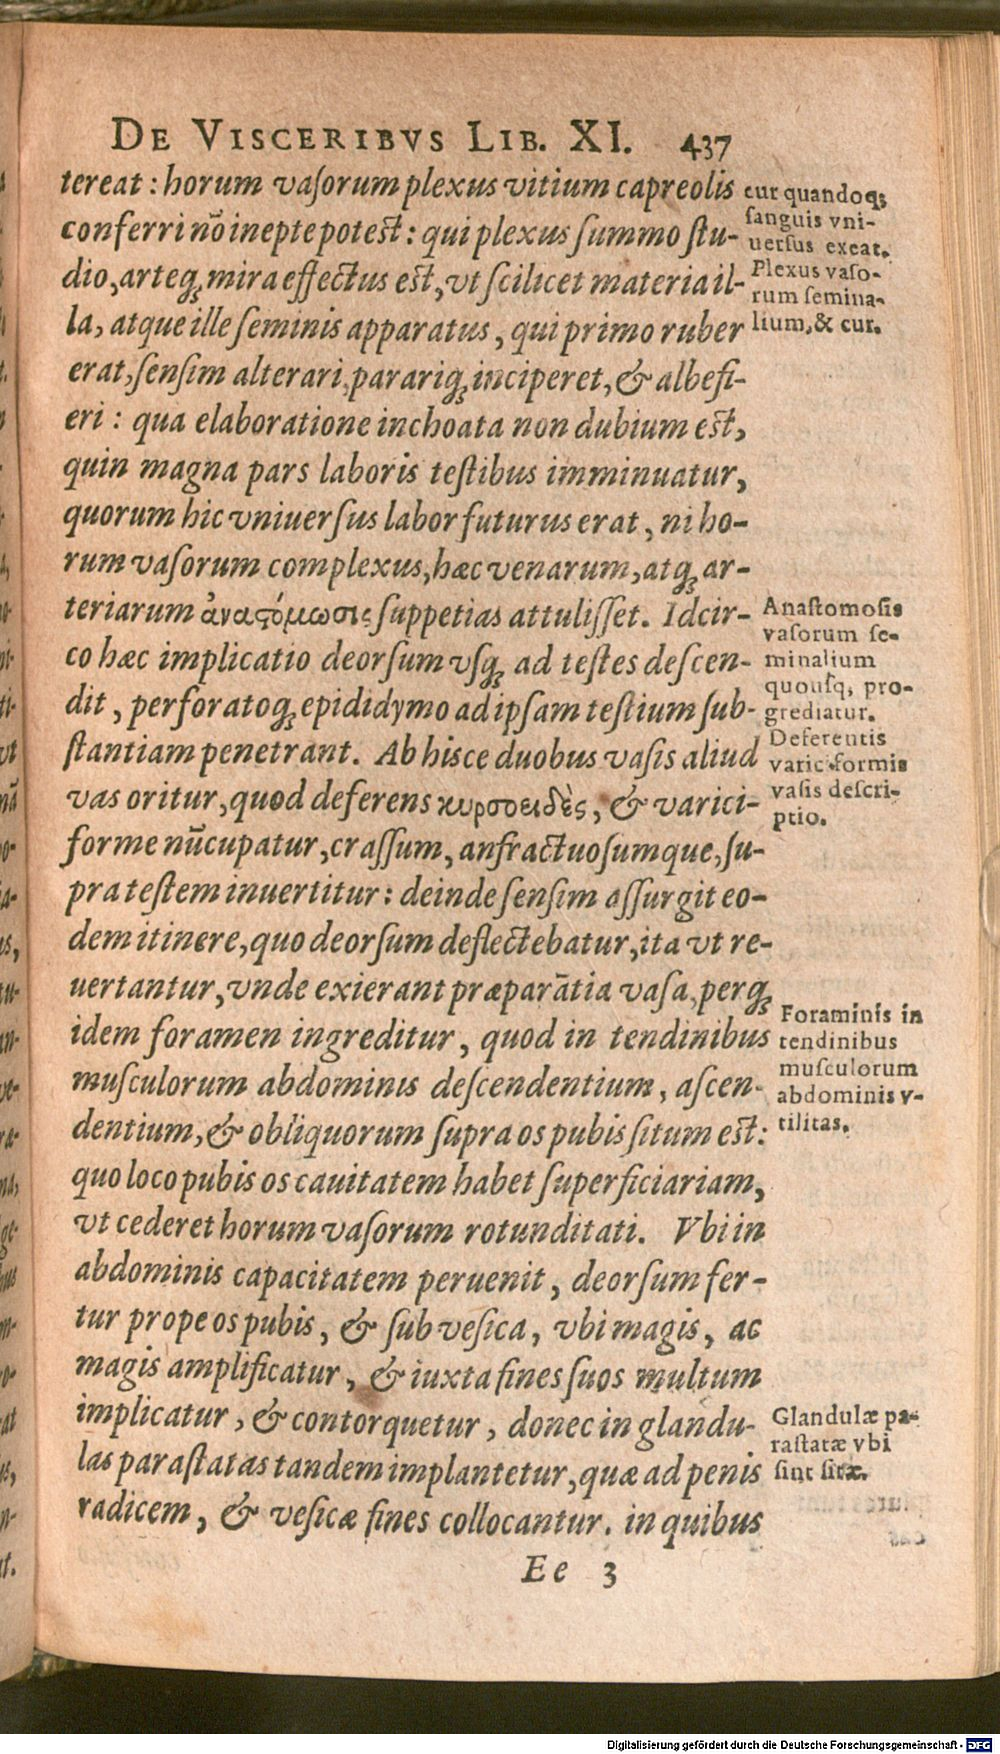 DE VISCERIBVS LIB. XI. 437
tereat: horum vaſorum plexus vitium capreolis
conferri nõ inepte poteſt: qui plexus ſummo ſtu-
dio, arteq́ꝫ mira effectus eſt, vt ſcilicet materia il-
la, atque ille ſeminis apparatus, qui primo ruber
erat, ſenſim alterari, parariq́ꝫ inciperet, & albefi-
eri: qua elaboratione inchoata non dubium eſt,
quin magna pars laboris teſtibus imminuatur,
quorum hic vniuerſus labor futurus erat, ni ho-
rum vaſorum complexus, hæc venarum, atqꝫ ar-
teriarum ἀναϛόμωσις ſuppetias attuliſſet. Idcir-
co hæc implicatio deorſum vſqꝫ ad teſtes deſcen-
dit, perforatoqꝫ epididymo ad ipſam teſtium ſub-
ſtantiam penetrant. Ab hisce duobus vaſis aliud
vas oritur, quod deferens κυρσοειδὲς, & varici-
forme nũcupatur, craſſum, anfractuoſumque, ſu-
pra teſtem inuertitur: deinde ſenſim aſſurgit eo-
dem itinere, quo deorſum deflectebatur, ita vt re-
uertantur, vnde exierant præparãtia vaſa, perqꝫ
idem foramen ingreditur, quod in tendinibus
muſculorum abdominis deſcendentium, aſcen-
dentium, & obliquorum ſupra os pubis ſitum eſt:
quo loco pubis os cauitatem habet ſuperficiariam,
vt cederet horum vaſorum rotunditati. Vbi in
abdominis capacitatem peruenit, deorſum fer-
tur prope os pubis, & ſub veſica, vbi magis, ac
magis amplificatur, & iuxta fines ſuos multum
implicatur, & contorquetur, donec in glandu-
las paraſtatas tandem implantetur, quæ ad penis
radicem, & veſicæ fines collocantur. in quibus
Ee 3
cur quandoqꝫ
ſanguis vni-
uerſus exeat.
Plexus vaſo-
rum ſemina-
lium, & cur.
Anaſtomoſis
vaſorum ſe-
minalium
quouſq; pro-
grediatur.
Deferentis
varic iformis
vaſis deſcri-
ptio.
Foraminis in
tendinibus
muſculorum
abdominis v-
tilitas.
Glandulæ pa-
raſtatæ vbi
ſint ſitæ.
Digitalisierung gefördert durch die Deutsche Forschungsgemeinschaft - DFG